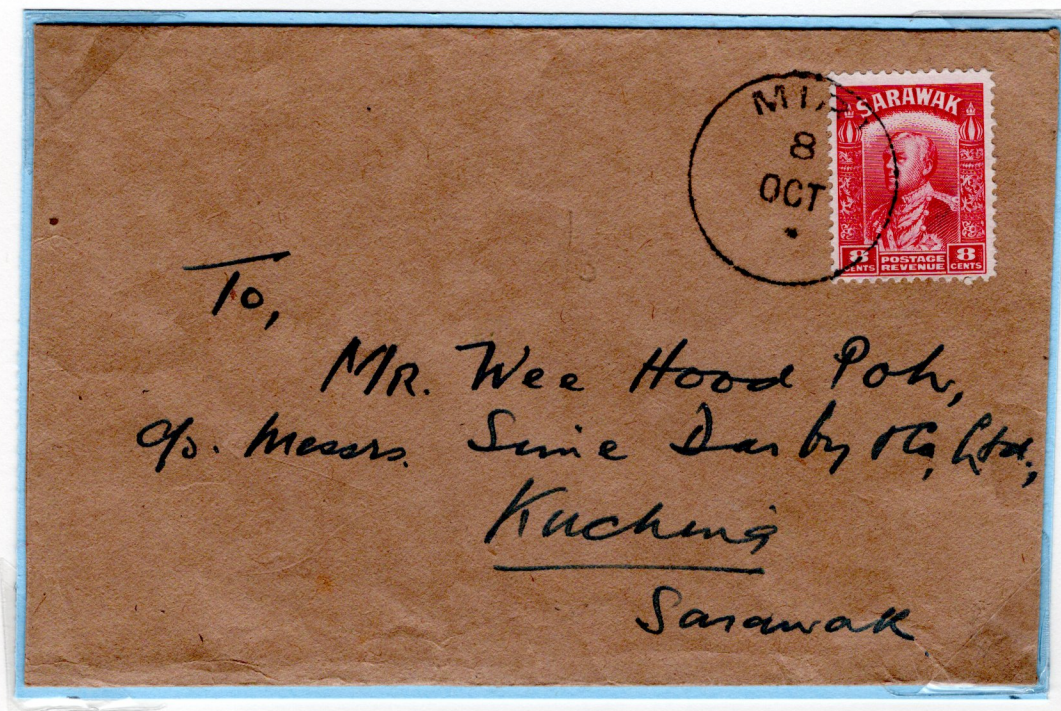 MIRI
8
OCT
*
SARAWAK
8 CENTS
POSTAGE
REVENUE
8 CENTS
To,
Mr. Wee Hood Poh,
c/o. Messrs. Sime Darby & Co, Ltd.,
Kuching
Sarawak